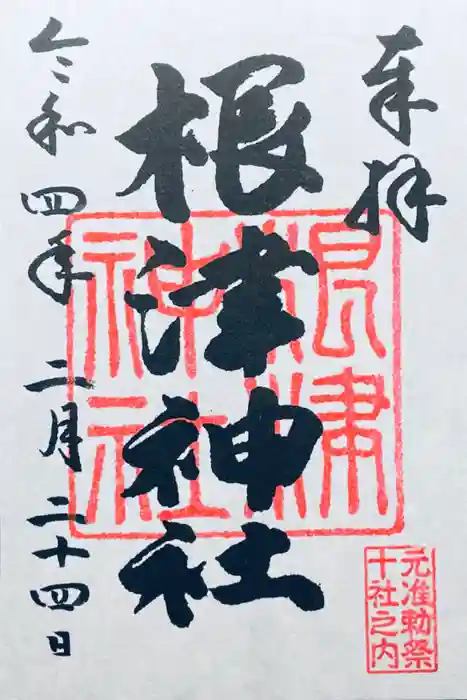 奉拝
根津神社
令和四年二月二十四日
根津
神社
元准勅祭
十社之内